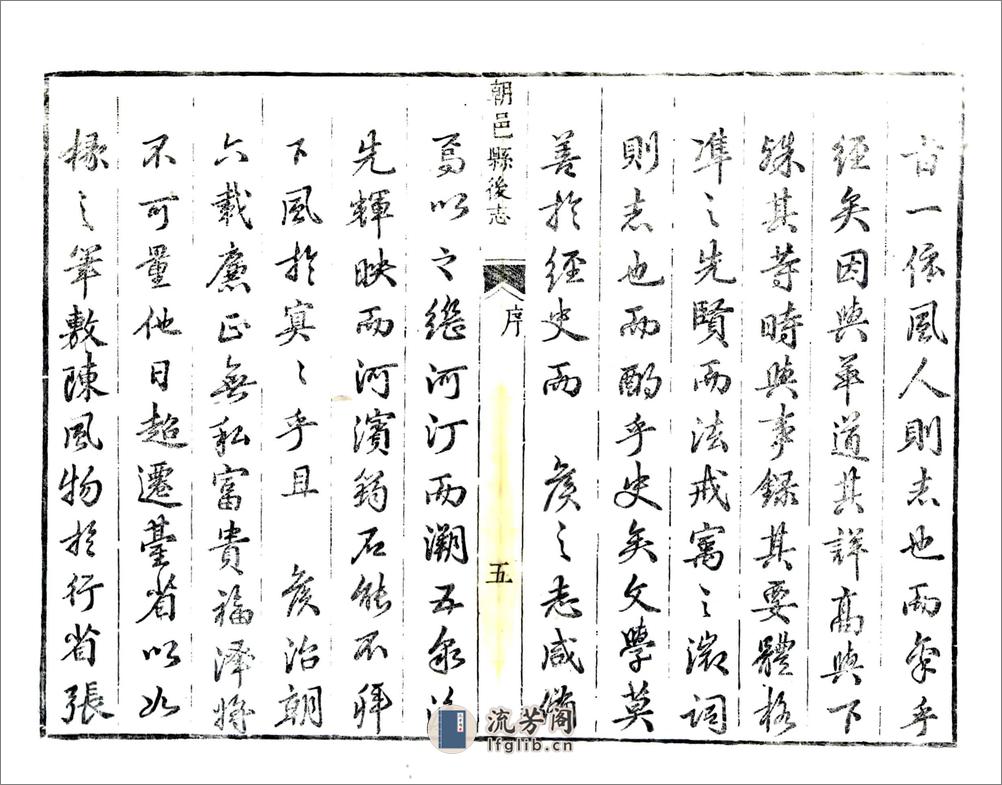 一依風人則志也而乎
經矣因與革道其詳高與下
殊其等時與事錄其要體格
準之先賢而法戒寓之微詞
則志也而酌乎史矣文學莫
善於經史而 侯之志咸備
朝邑縣後志
序
五
焉以之繼河汀而溯五泉
先輝映而河濱石能不拜
下風於寞〻乎且 侯治朝
六載廉正無私富貴福澤將
不可量他日超遷臺省以如
椽之筆敷陳風物於行省張
流芳閣
lfglib.cn